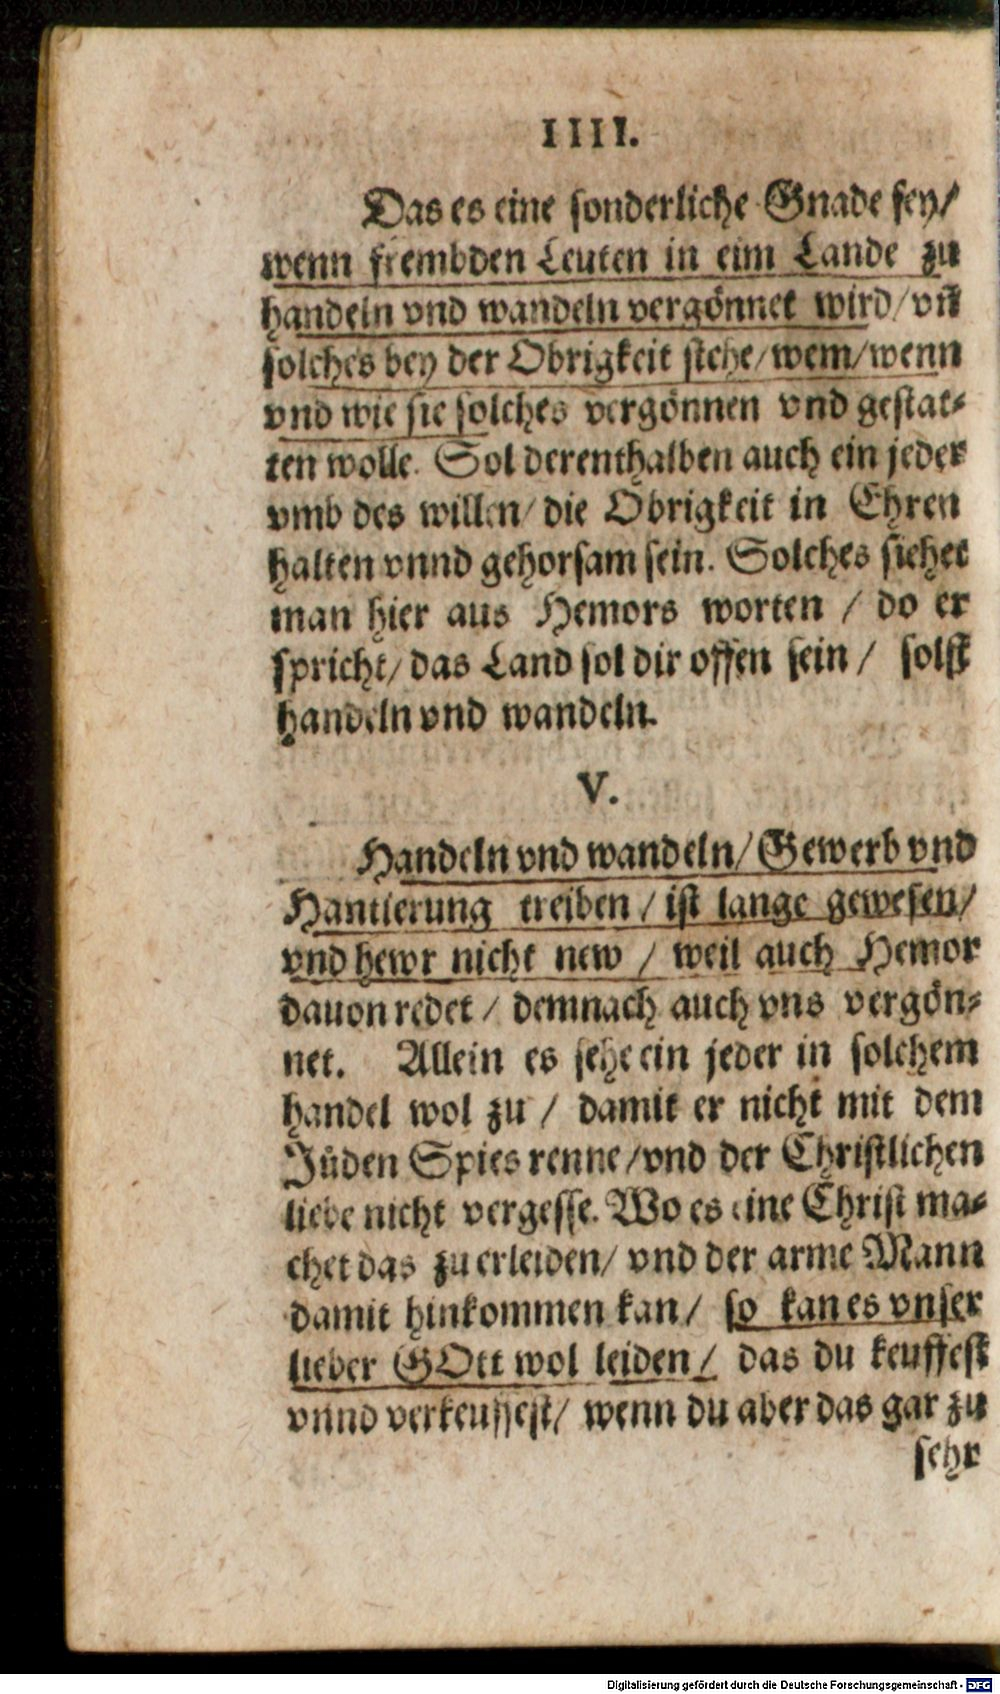 IIII.
Das es eine sonderliche Gnade sey/
wenn frembden Leuten in eim Lande zu
handeln vnd wandeln vergönnet wird/ vñ
solches bey der Obrigkeit stehe/ wem/ wenn
vnd wie sie solches vergönnen vnd gestat⸗
ten wolle. Sol derenthalben auch ein jeder
vmb des willen/ die Obrigkeit in Ehren
halten vnnd gehorsam sein. Solches siehet
man hier aus Hemors worten / do er
spricht/ das Land sol dir offen sein / solst
handeln vnd wandeln.
V.
Handeln vnd wandeln/ Gewerb vnd
Hantierung treiben / ist lange gewesen/
vnd hewr nicht new / weil auch Hemor
dauon redet / demnach auch vns vergön⸗
net. Allein es sehe ein jeder in solchem
handel wol zu / damit er nicht mit dem
Jüden Spies renne/ vnd der Christlichen
liebe nicht vergesse. Wo es eine Christ ma⸗
chet das zu erleiden/ vnd der arme Mann
damit hinkommen kan/ so kan es vnser
lieber GOtt wol leiden/ das du keuffest
vnnd verkeuffest/ wenn du aber das gar zu
sehr
Digitalisierung gefördert durch die Deutsche Forschungsgemeinschaft - DFG